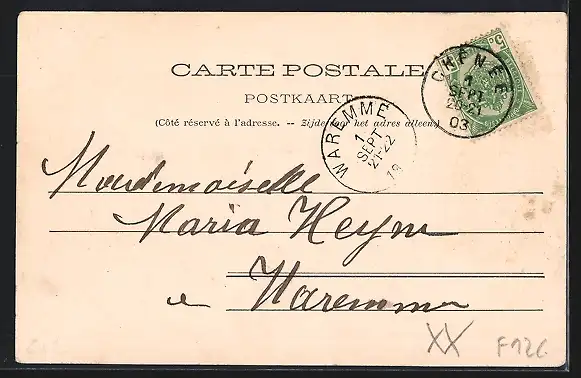 CARTE POSTALE
POSTKAART
(Côté réservé à l'adresse. -- Zijde voor het adres alleen)
CHÊNÉE
1
SEPT
20-21
03
5c
WAREMME
1
SEPT
21-22
19
Mademoiselle
Maria Heyne
à Waremme
XX
F126